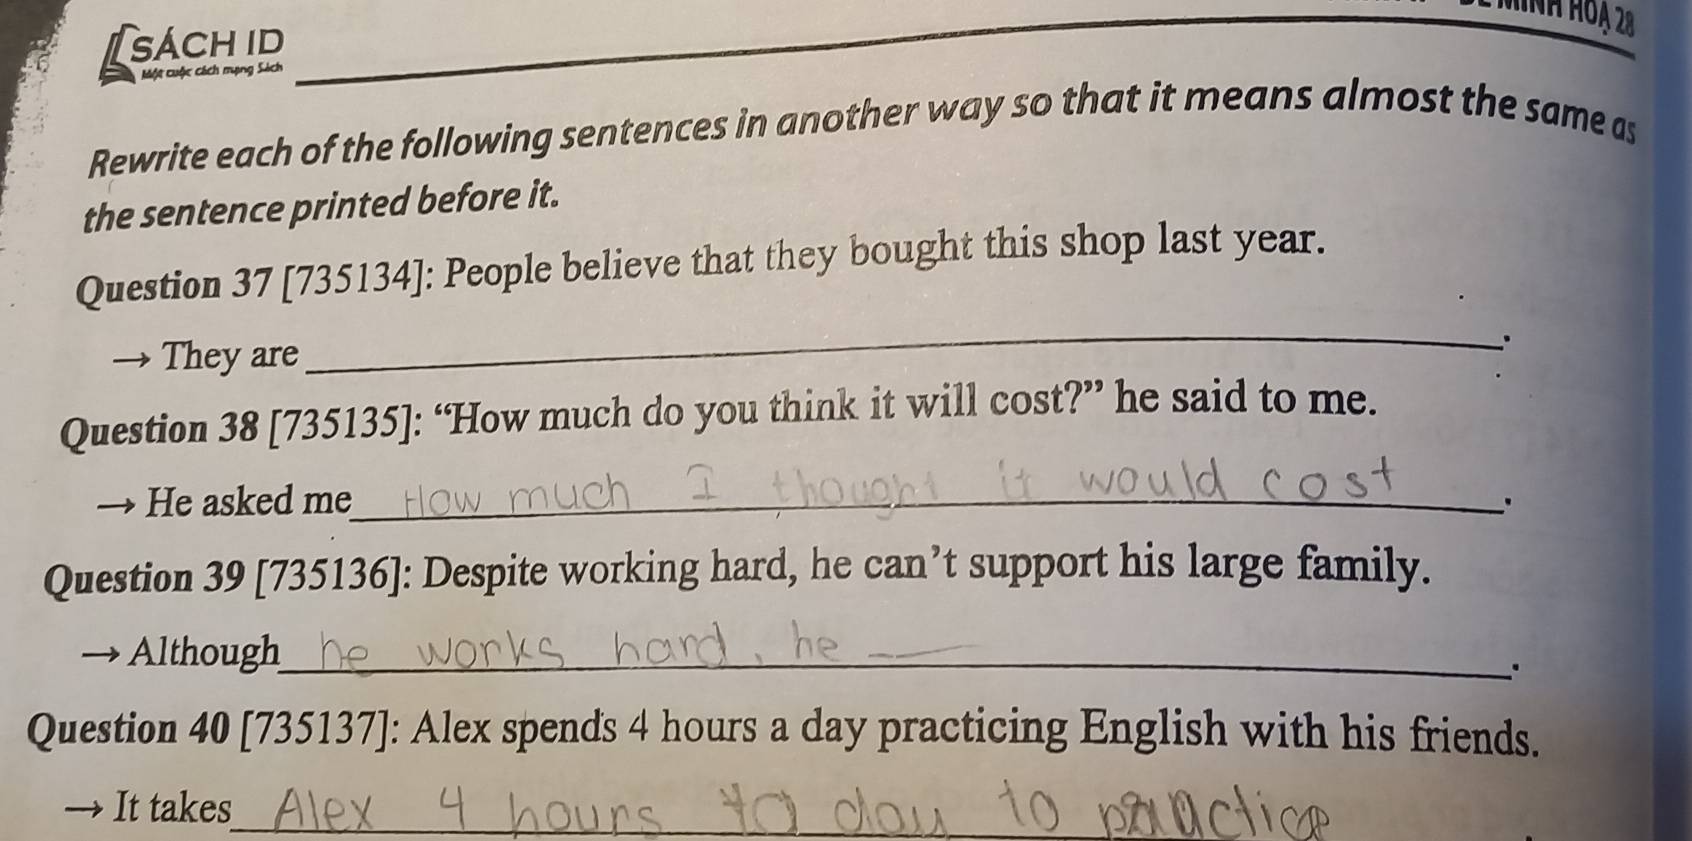 SÁCH ID
Một cuộc cách mạng Sách
MINH HOẠ 28
Rewrite each of the following sentences in another way so that it means almost the same as
the sentence printed before it.
Question 37 [735134]: People believe that they bought this shop last year.
→ They are ______.
Question 38 [735135]: “How much do you think it will cost?” he said to me.
→ He asked me How much I thought it would cost.
Question 39 [735136]: Despite working hard, he can’t support his large family.
→ Although he works hard, he —.
Question 40 [735137]: Alex spends 4 hours a day practicing English with his friends.
→ It takes Alex 4 hours a day to practice